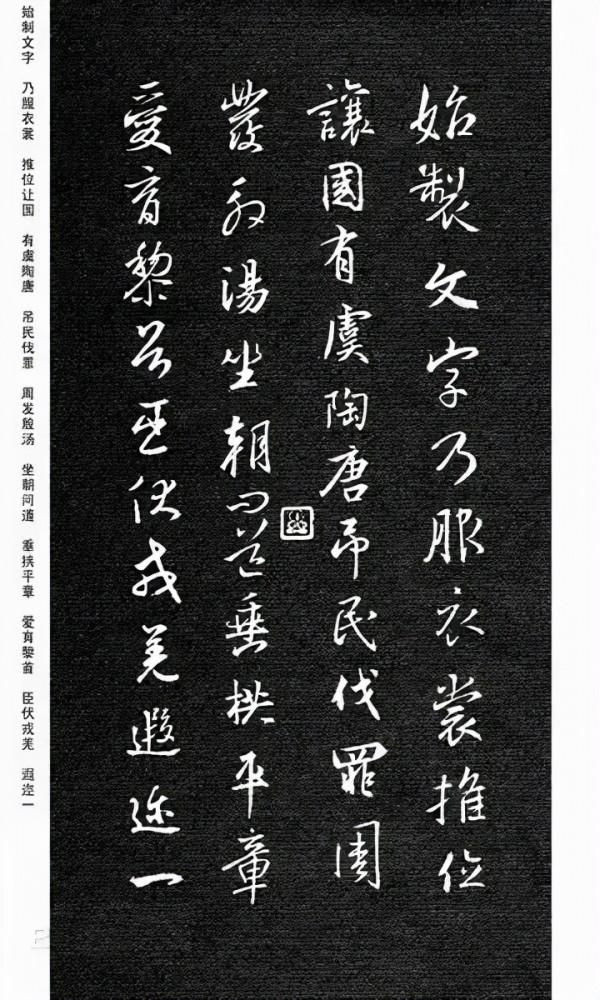 始製文字乃服衣裳推位
讓國有虞陶唐吊民伐罪周
發殷湯坐朝問道垂拱平章
愛育黎首臣伏戎羌遐迩一
始制文字 乃服衣裳 推位让国 有虞陶唐 吊民伐罪 周发殷汤 坐朝问道 垂拱平章 爱育黎首 臣伏戎羌 遐迩一